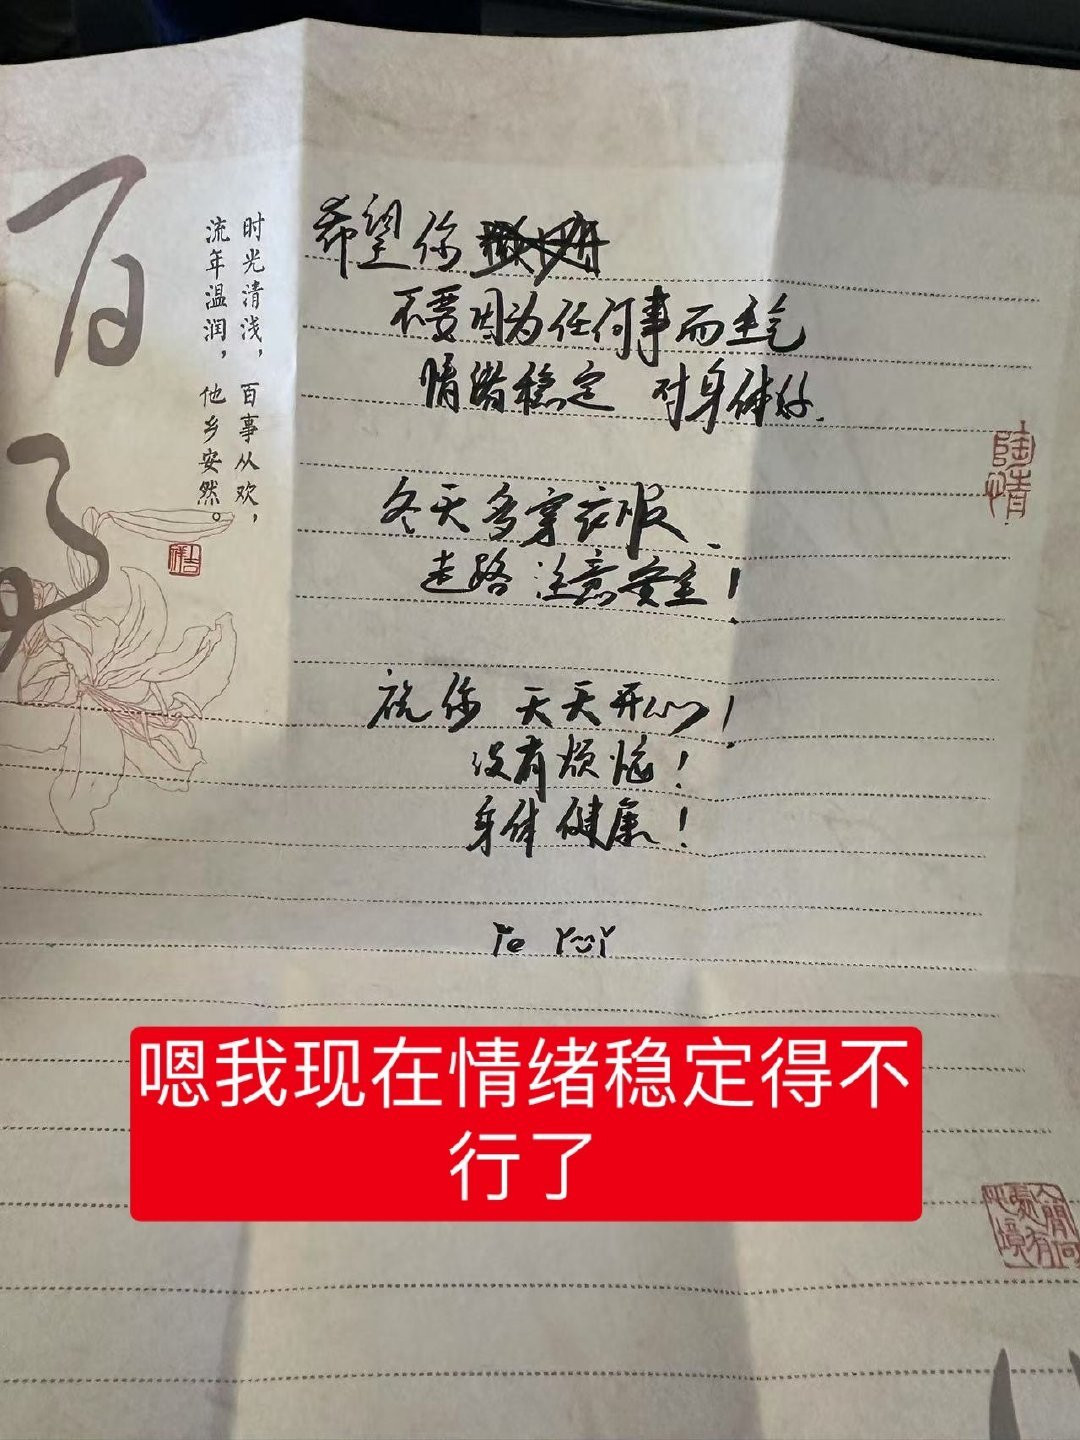 时光清浅，百事从欢，
流年温润，他乡安然。
吉祥
希望你
不要因为任何事而生气
情绪稳定 对身体好.
陶情
冬天多穿衣服.
走路注意安全！
祝你 天天开心！
没有烦恼！
身体健康！
嗯我现在情绪稳定得不
行了